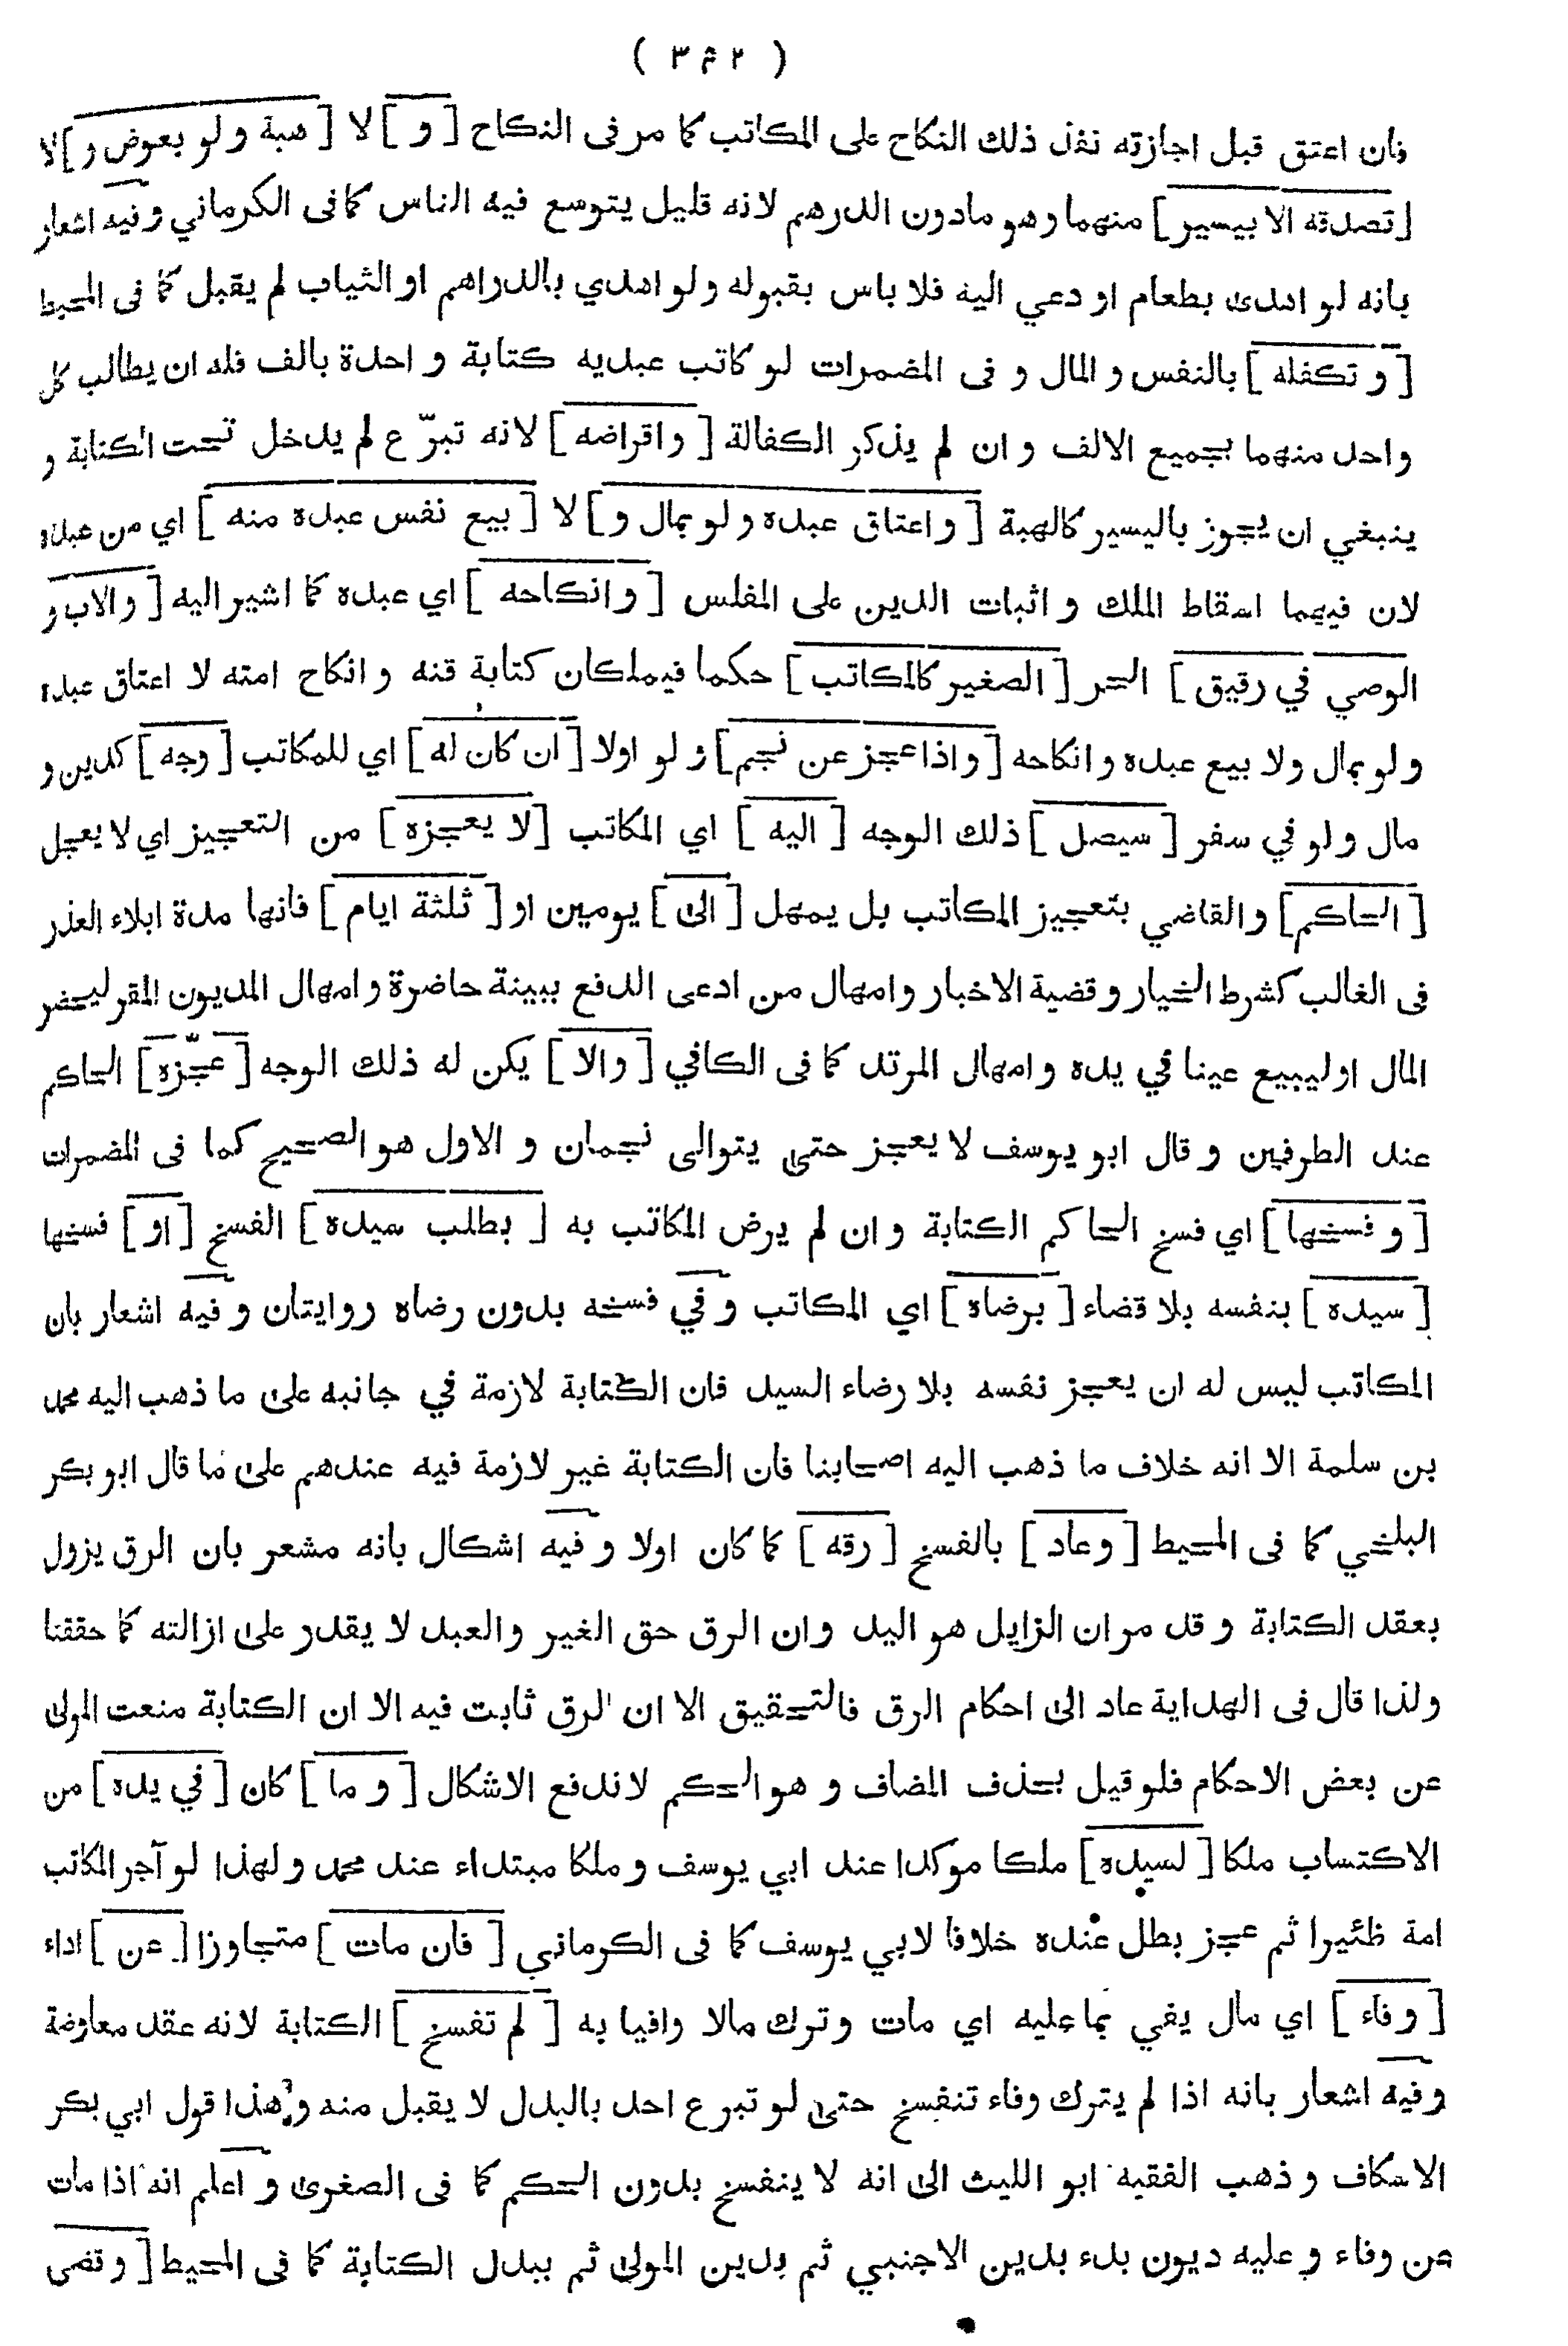 ( ٣٤٢ )
فان اعتق قبل اجازته نفذ ذلك النكاح على المكاتب كما مر فى النكاح [ و ] لا [ هبة ولو بعوض و ] لا
[ تصدقه الا بيسير ] منهما وهو مادون الدرهم لانه قليل يتوسع فيه الناس كما فى الكرماني وفيه اشعار
بانه لو اهدى بطعام او دعي اليه فلا باس بقبوله ولو اهدي بالدراهم او الثياب لم يقبل كما فى المحيط
[ و تكفله ] بالنفس و المال و فى المضمرات لو كاتب عبديه كتابة و احدة بالف فله ان يطالب كل
واحد منهما بجميع الالف و ان لم يذكر الكفالة [ واقراضه ] لانه تبرّع لم يدخل تحت الكتابة و
ينبغي ان يجوز باليسير كالهبة [ واعتاق عبده ولو بمال و ] لا [ بيع نفس عبده منه ] اي من عبده
لان فيهما اسقاط الملك و اثبات الدين على المفلس [ وانكاحه ] اي عبده كما اشير اليه [ والاب و
الوصي في رقيق ] الحر [ الصغير كالمكاتب ] حكما فيملكان كتابة قنه و انكاح امته لا اعتاق عبده
ولو بمال ولا بيع عبده وانكاحه [ واذا عجز عن نجم ] ولو اولا [ ان كان له ] اي للمكاتب [ وجه ] كدين و
مال ولو في سفر [ سيصل ] ذلك الوجه [ اليه ] اي المكاتب [ لا يعجزه ] من التعجيز اي لا يعجل
[ الحاكم ] والقاضي بتعجيز المكاتب بل يمهل [ الى ] يومين او [ ثلثة ايام ] فانها مدة ابلاء العذر
فى الغالب كشرط الخيار وقضية الاخبار وامهال من ادعى الدفع ببينة حاضرة وامهال المديون المقر ليحضر
المال اوليبيع عينا في يده وامهال المرتد كما فى الكافي [ والا ] يكن له ذلك الوجه [ عجّزه ] الحاكم
عند الطرفين و قال ابو يوسف لا يعجز حتى يتوالى نجمان و الاول هو الصحيح كما فى المضمرات
[ و فسخها ] اي فسخ الحاكم الكتابة و ان لم يرض المكاتب به [ بطلب سيده ] الفسخ [ او ] فسخها
[ سيده ] بنفسه بلا قضاء [ برضاه ] اي المكاتب وفي فسخه بدون رضاه روايتان وفيه اشعار بان
المكاتب ليس له ان يعجز نفسه بلا رضاء السيد فان الكتابة لازمة في جانبه على ما ذهب اليه محمد
بن سلمة الا انه خلاف ما ذهب اليه اصحابنا فان الكتابة غير لازمة فيه عندهم على ما قال ابو بكر
البلخي كما فى المحيط [ وعاد ] بالفسخ [ رقه ] كما كان اولا وفيه اشكال بانه مشعر بان الرق يزول
بعقد الكتابة و قد مر ان الزايل هو اليد وان الرق حق الغير والعبد لا يقدر على ازالته كما حققنا
ولذا قال فى الهداية عاد الى احكام الرق فالتحقيق الا ان الرق ثابت فيه الا ان الكتابة منعت المولى
عن بعض الاحكام فلو قيل بحذف المضاف و هو الحكم لاندفع الاشكال [ و ما ] كان [ في يده ] من
الاكتساب ملكا [ لسيده ] ملكا موكدا عند ابي يوسف وملكا مبتداء عند محمد ولهذا لو آجر المكاتب
امة ظئيرا ثم عجز بطل عنده خلافا لابي يوسف كما فى الكرماني [ فان مات ] متجاوزا [ عن ] اداء
[ وفاء ] اي مال يفي بما عليه اي مات وترك مالا وافيا به [ لم تفسخ ] الكتابة لانه عقد معاوضة
وفيه اشعار بانه اذا لم يترك وفاء تنفسخ حتى لو تبرع احد بالبدل لا يقبل منه وهذا قول ابي بكر
الاسكاف وذهب الفقيه ابو الليث الى انه لا ينفسخ بدون الحكم كما فى الصغرى واعلم انه اذا مات
عن وفاء وعليه ديون بدء بدين الاجنبي ثم بدين المولى ثم ببدل الكتابة كما فى المحيط [ وقضى